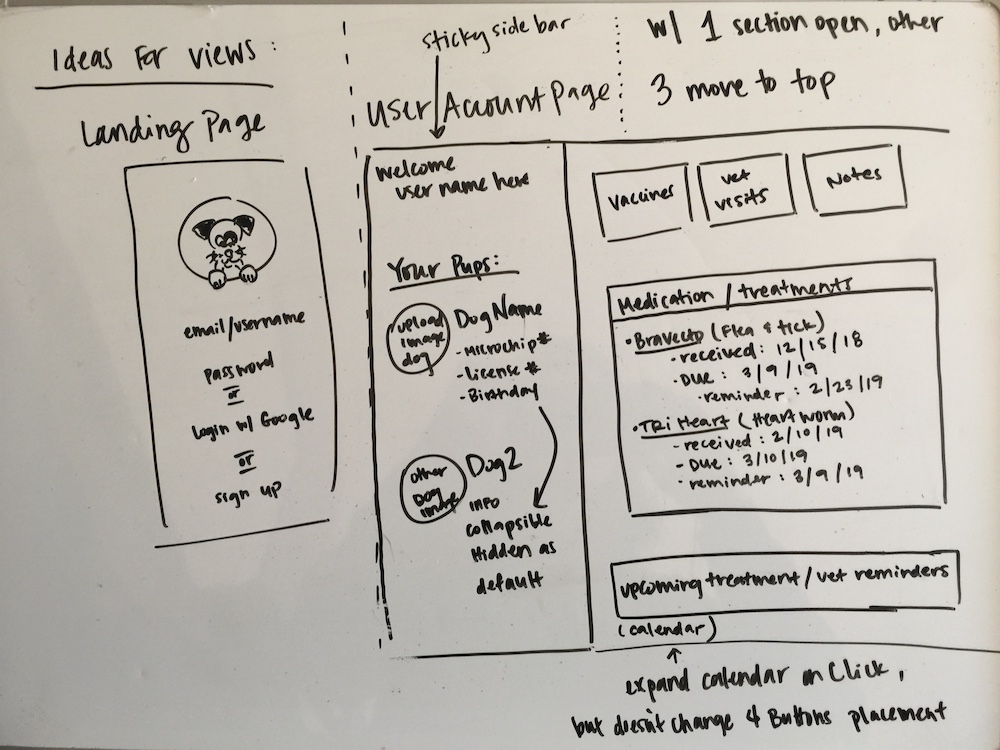 Ideas For views :
Landing Page
email/username
password
or
Login w/ Google
or
sign up
sticky side bar
User Account Page :
w/ 1 section open, other
3 move to top
Welcome
user name here
Your Pups:
upload
image
dog
Dog Name
- Microchip #
- License #
- Birthday
other
Dog
image
Dog2
INFO
collapsible
Hidden as
default
Vaccines
vet
visits
Notes
Medication / treatments
• Bravecto (Flea & tick)
- received : 12/15/18
- Due : 3/9/19
- reminder : 2/23/19
• TRi Heart (Heart worm)
- received : 2/10/19
- Due : 3/10/19
- reminder : 3/9/19
upcoming treatment / vet reminders
(calendar)
expand calendar on Click,
but doesn't change 4 Buttons placement